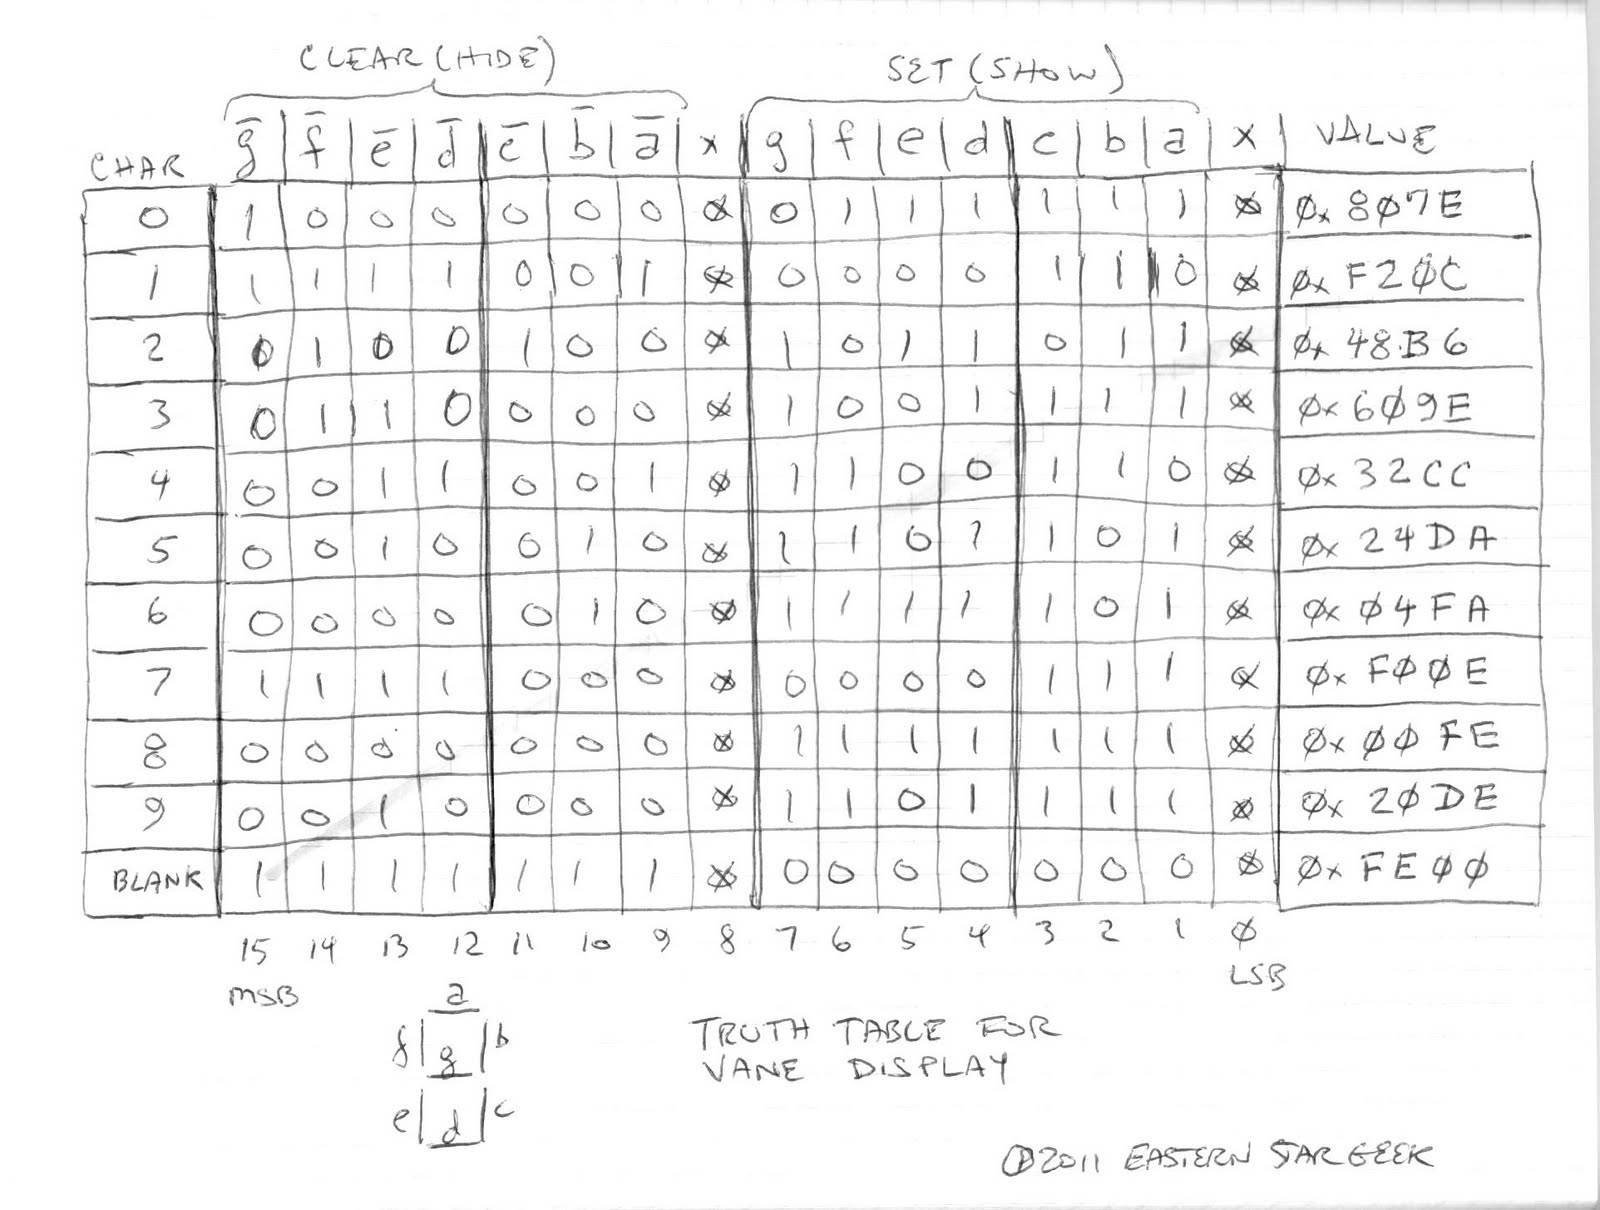 CLEAR (HIDE) SET (SHOW)
CHAR g̅ f̅ e̅ d̅ c̅ b̅ a̅ x g f e d c b a x VALUE
0 1 0 0 0 0 0 0 Ø 0 1 1 1 1 1 1 Ø Øx 8Ø7E
1 1 1 1 1 0 0 1 Ø 0 0 0 0 1 1 0 Ø Øx F2ØC
2 0 1 0 0 1 0 0 Ø 1 0 1 1 0 1 1 Ø Øx 48B6
3 0 1 1 0 0 0 0 Ø 1 0 0 1 1 1 1 Ø Øx 6Ø9E
4 0 0 1 1 0 0 1 Ø 1 1 0 0 1 1 0 Ø Øx 32CC
5 0 0 1 0 0 1 0 Ø 1 1 0 1 1 0 1 Ø Øx 24DA
6 0 0 0 0 0 1 0 Ø 1 1 1 1 1 0 1 Ø Øx Ø4FA
7 1 1 1 1 0 0 0 Ø 0 0 0 0 1 1 1 Ø Øx FØØE
8 0 0 0 0 0 0 0 Ø 1 1 1 1 1 1 1 Ø Øx ØØFE
9 0 0 1 0 0 0 0 Ø 1 1 0 1 1 1 1 Ø Øx 2ØDE
BLANK 1 1 1 1 1 1 1 Ø 0 0 0 0 0 0 0 Ø Øx FEØØ
15 14 13 12 11 10 9 8 7 6 5 4 3 2 1 Ø
MSB LSB
a
f g b
e d c
TRUTH TABLE FOR
VANE DISPLAY
©2011 EASTERN STAR GEEK